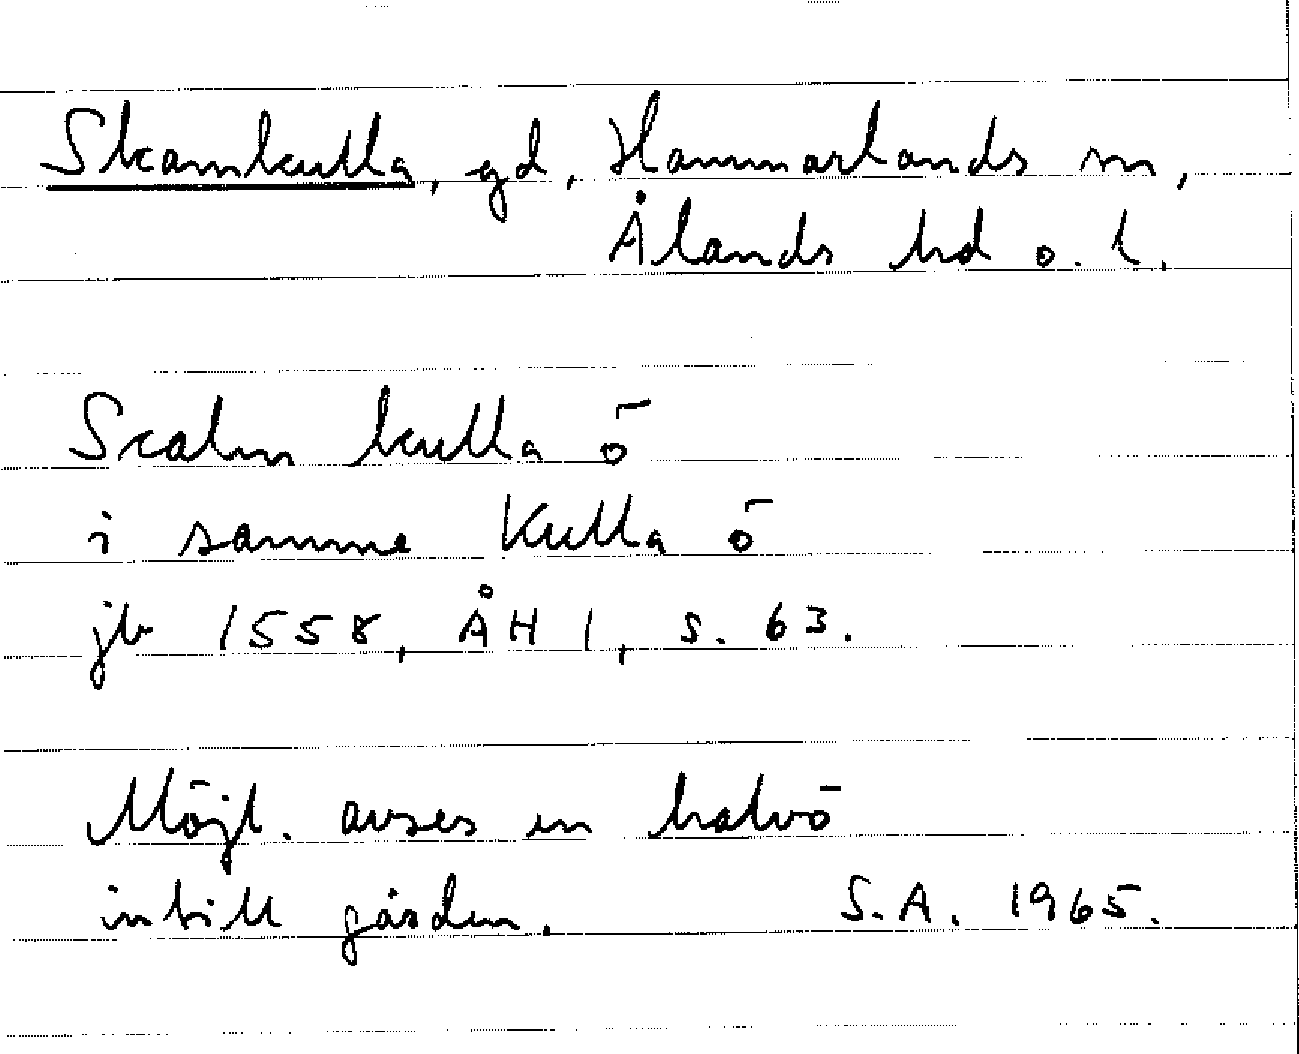 Skamkulla, gd, Hammarlands sn,
Ålands hd o. l.
Scalm kulla ö
i samme Kulla ö
jb 1558, ÅH 1, s. 63.
Möjl. avses en halvö
intill gården. S.A. 1965.